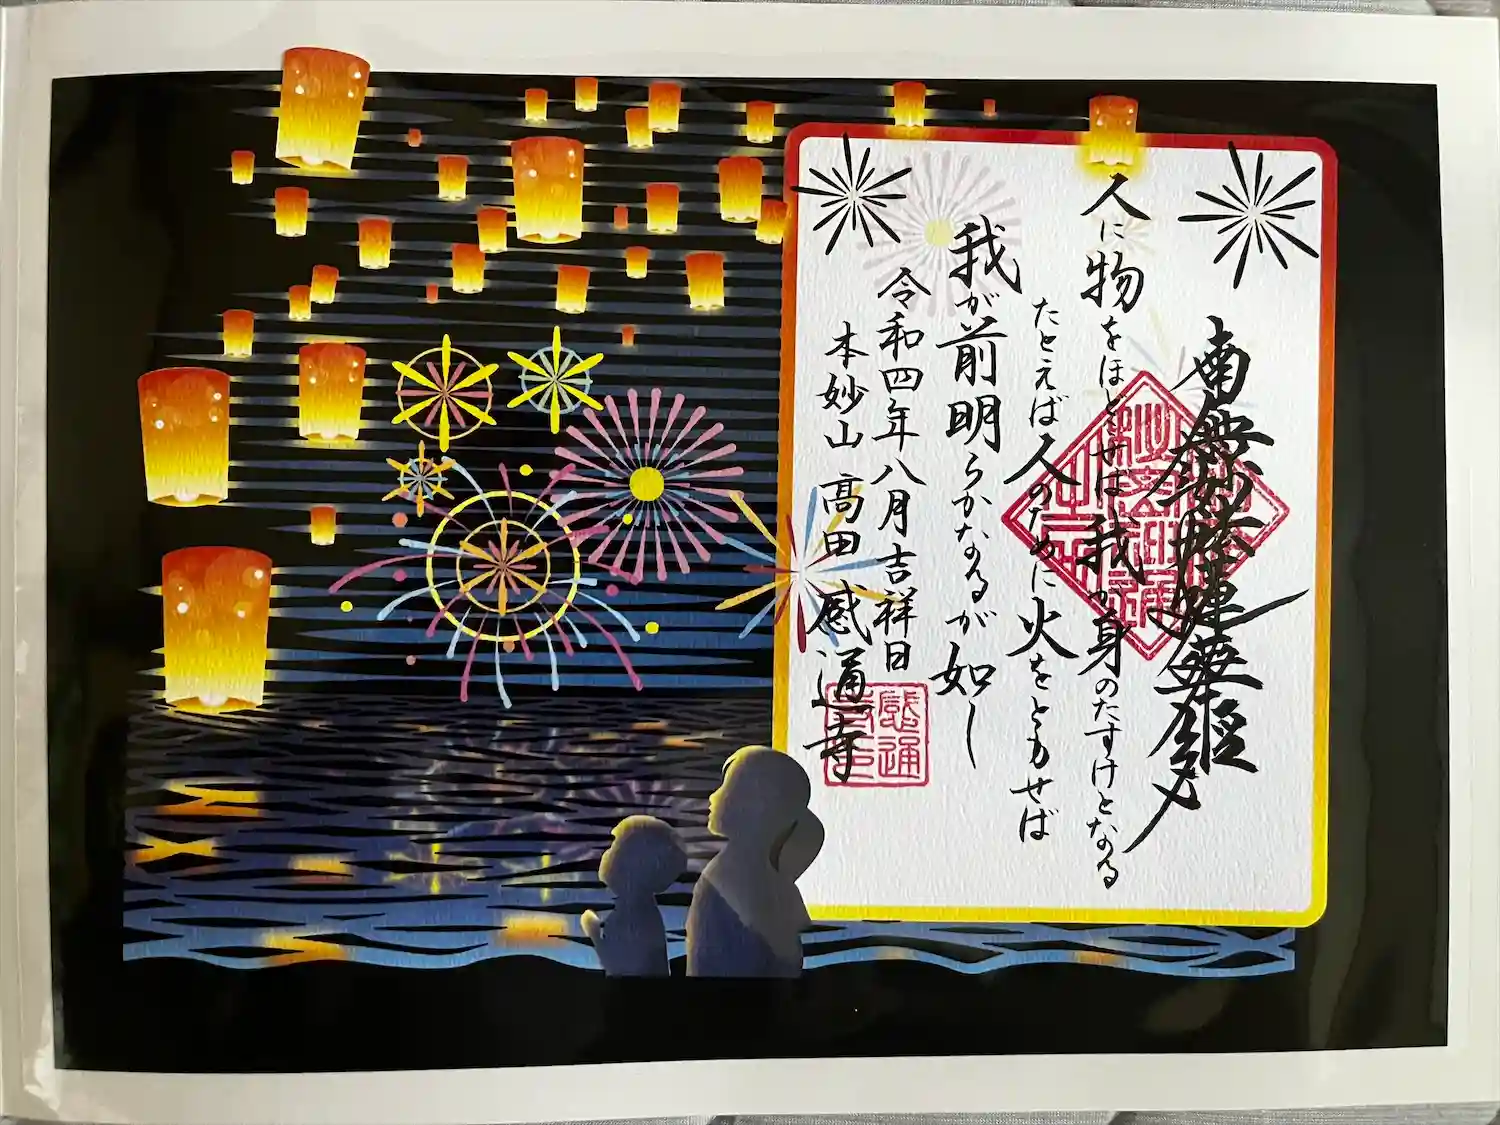 南無妙法蓮華経
人に物をほどこせば我が身のたすけとなる
たとえば人のために火をともせば
我が前明らかなるが如し
令和四年八月吉祥日
本妙山 高田 感通寺
感通寺印